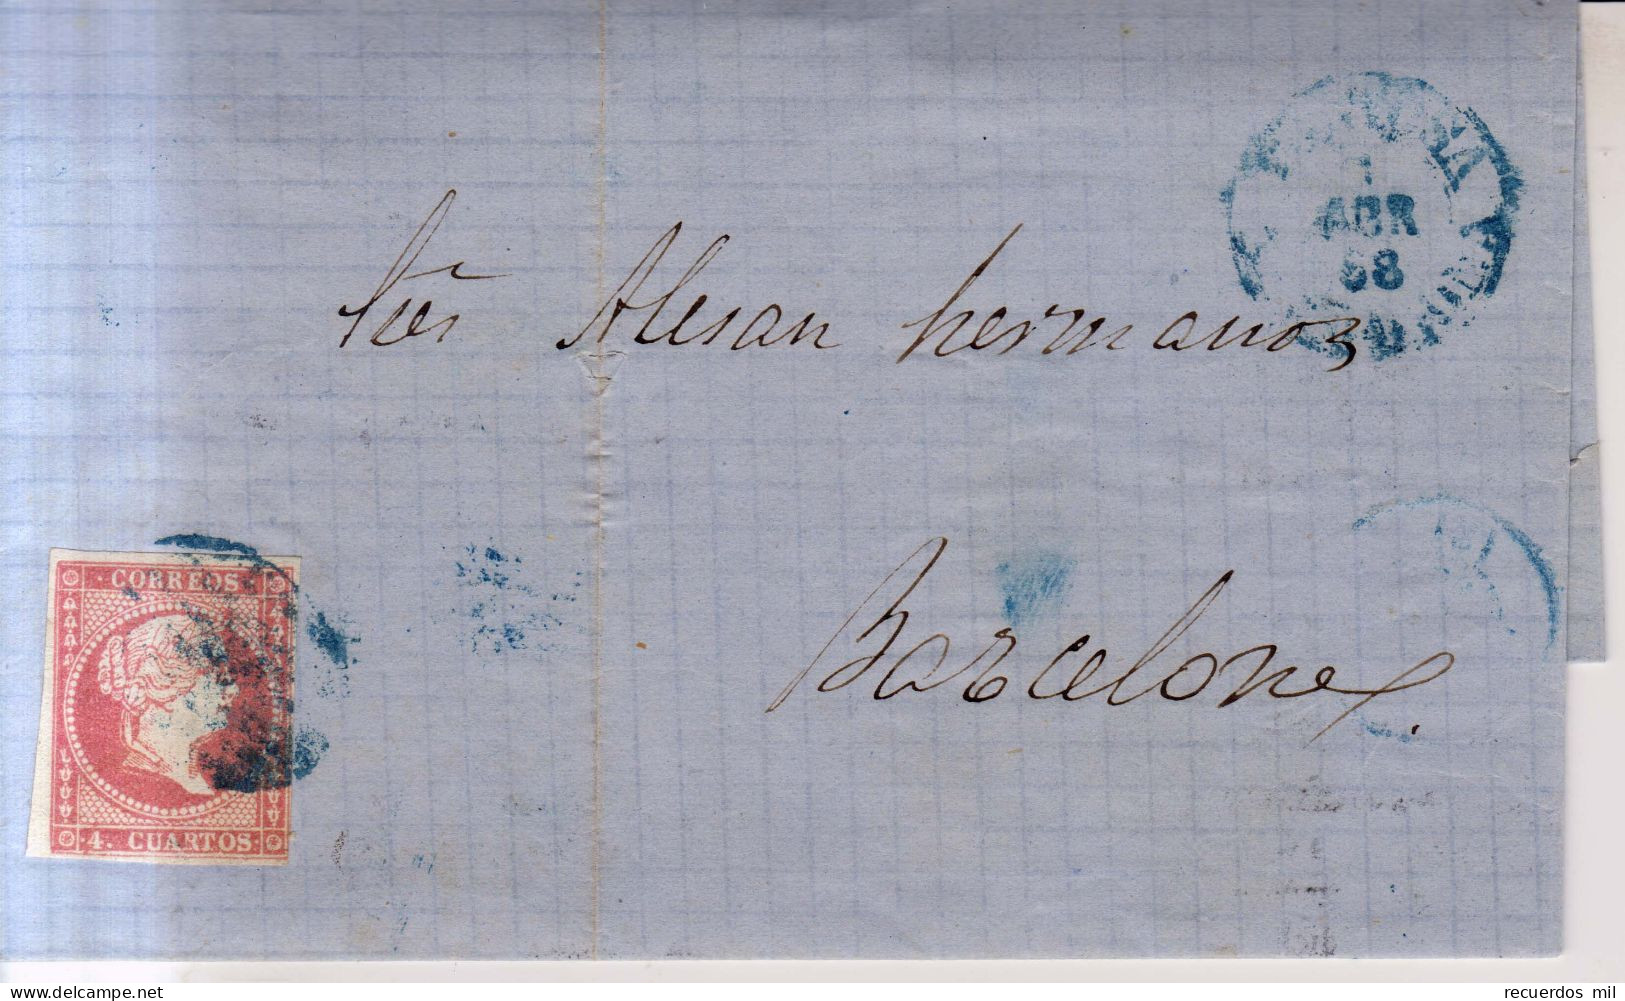 ABR
58
Sres Alesan hermanos
Barcelona.
CORREOS
4. CUARTOS
delcampe.net
recuerdos mil